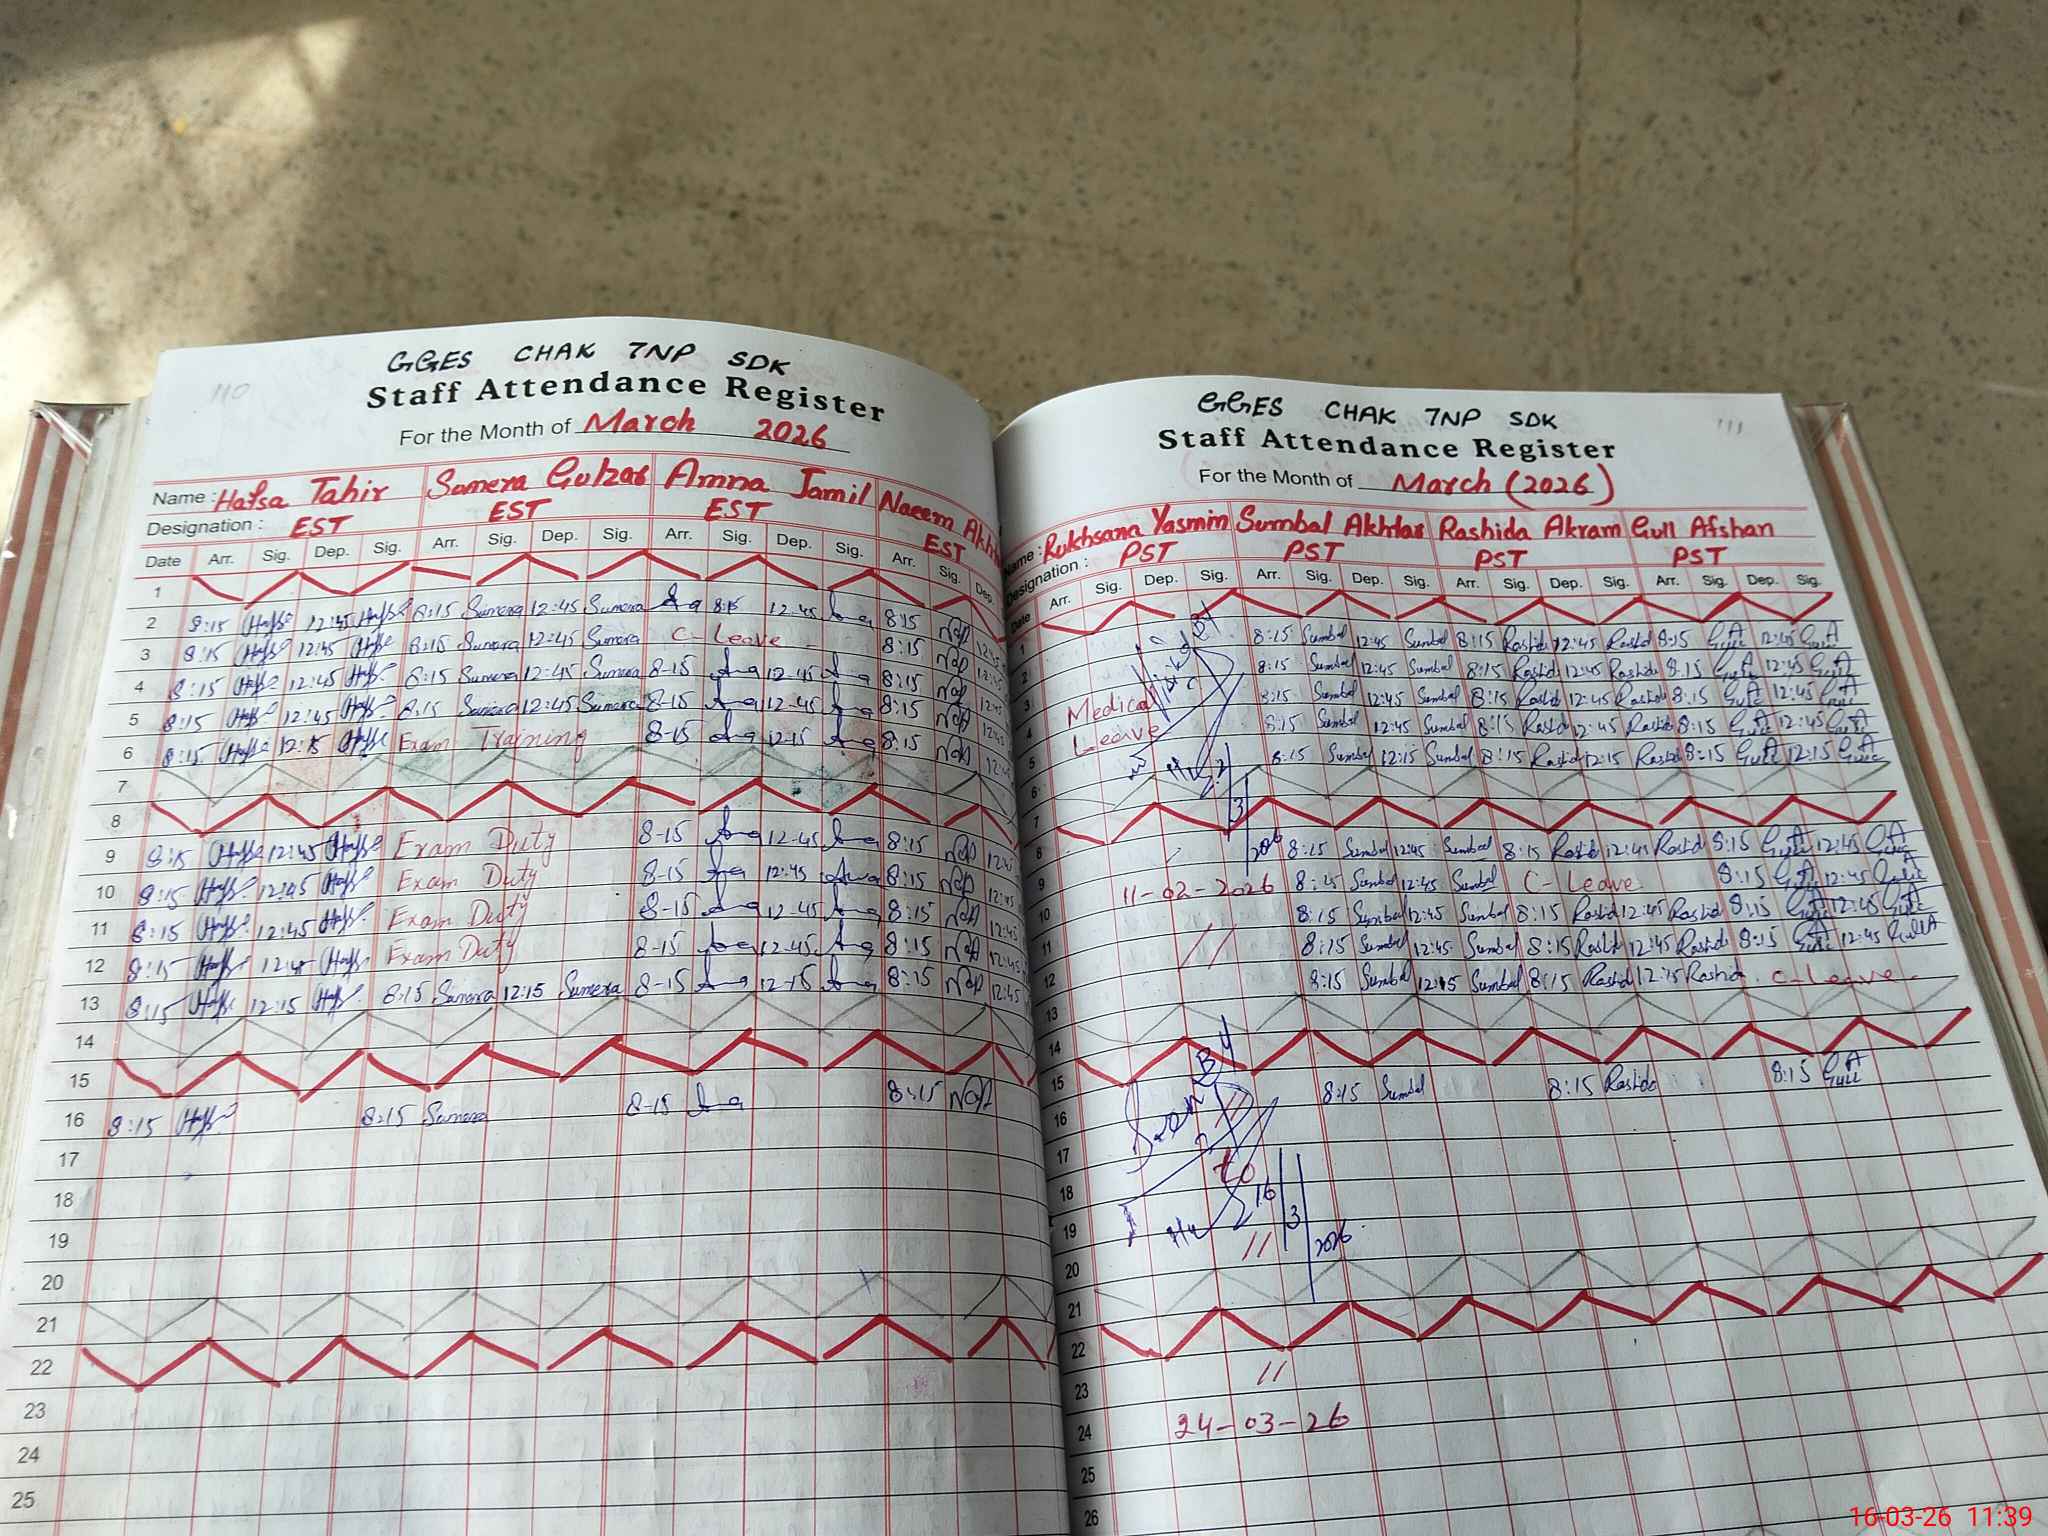 110
GGES CHAK 7NP SDK
Staff Attendance Register
For the Month of March 2026
Name : Hafsa Tahir Sumera Gulzar Amna Jamil Naeem Akh
Designation : EST EST EST EST
Date Arr. Sig. Dep. Sig. Arr. Sig. Dep. Sig. Arr. Sig. Dep. Sig. Arr. Sig. Dep.
1
2 8:15 12:45 8:15 Sumera 12:45 Sumera 8:15 12:45 8:15 12:45
3 8:15 12:45 8:15 Sumera 12:45 Sumera C-Leave 8:15 12:45
4 8:15 12:45 8:15 Sumera 12:45 Sumera 8-15 12-45 8:15 12:45
5 8:15 12:45 8:15 Sumera 12:45 Sumera 8-15 12-45 8:15 12:45
6 8:15 12:15 Exam Training 8-15 12-15 8:15
7
8
9 8:15 12:45 Exam Duty 8-15 12-45 8:15 12:45
10 8:15 12:45 Exam Duty 8-15 12:45 8:15 12:45
11 8:15 12:45 Exam Duty 8-15 12-45 8:15 12:45
12 8:15 12:45 Exam Duty 8-15 12-45 8:15 12:45
13 8:15 12:15 8:15 Sumera 12:15 Sumera 8-15 12-15 8:15 12:45
14
15
16 8:15 8:15 Sumera 8-15 8:15
17
18
19
20
21
22
23
24
25
111
GGES CHAK 7NP SDK
Staff Attendance Register
For the Month of March (2026)
Name : Rukhsana Yasmin Sumbal Akhtar Rashida Akram Gull Afshan
Designation : PST PST PST PST
Date Arr. Sig. Dep. Sig. Arr. Sig. Dep. Sig. Arr. Sig. Dep. Sig. Arr. Sig. Dep. Sig.
1
8:15 Sumbal 12:45 Sumbal 8:15 Rashid 12:45 Rashid 8:15 12:45
2 8:15 Sumbal 12:45 Sumbal 8:15 Rashid 12:45 Rashida 8:15 12:45
3 Medical 8:15 Sumbal 12:45 Sumbal 8:15 Rashid 12:45 Rashid 8:15 12:45
4 Leave 8:15 Sumbal 12:45 Sumbal 8:15 Rashid 12:45 Rashid 8:15 12:45
5 8:15 Sumbal 12:15 Sumbal 8:15 Rashid 12:15 Rashid 8:15 Gull 12:15
6
7 3
8 2026 8:15 Sumbal 12:45 Sumbal 8:15 Rashid 12:45 Rashid 8:15 12:45
9 11-02-2026 8:15 Sumbal 12:45 Sumbal C-Leave 8:15 12:45
10 8:15 Sumbal 12:45 Sumbal 8:15 Rashid 12:45 Rashid 8:15 12:45
11 // 8:15 Sumbal 12:45 Sumbal 8:15 Rashid 12:45 Rashid 8:15 12:45
12 8:15 Sumbal 12:15 Sumbal 8:15 Rashid 12:15 Rashida C-Leave
13
14
15 8:15 Sumbal 8:15 Rashida 8:15 Gull
16 //
17 to
18 16
19 3
// 2026
20
21
22
//
23
24 24-03-26
25
26
16-03-26 11:39